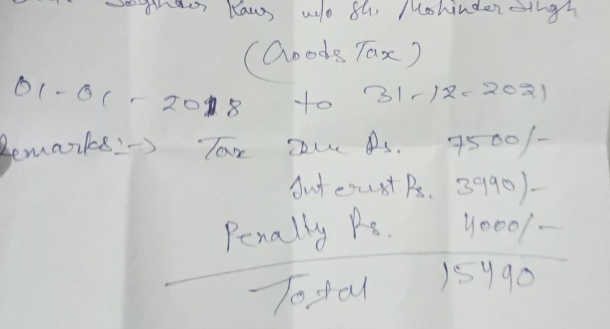 Joginder Kaur w/o Sh. Mohinder Singh
(Goods Tax)
01-01-2018 to 31-12-2021
Remarks:-> Tax Due Rs. 7500/-
Interest Rs. 3990/-
Penalty Rs. 4000/-
Total 15490